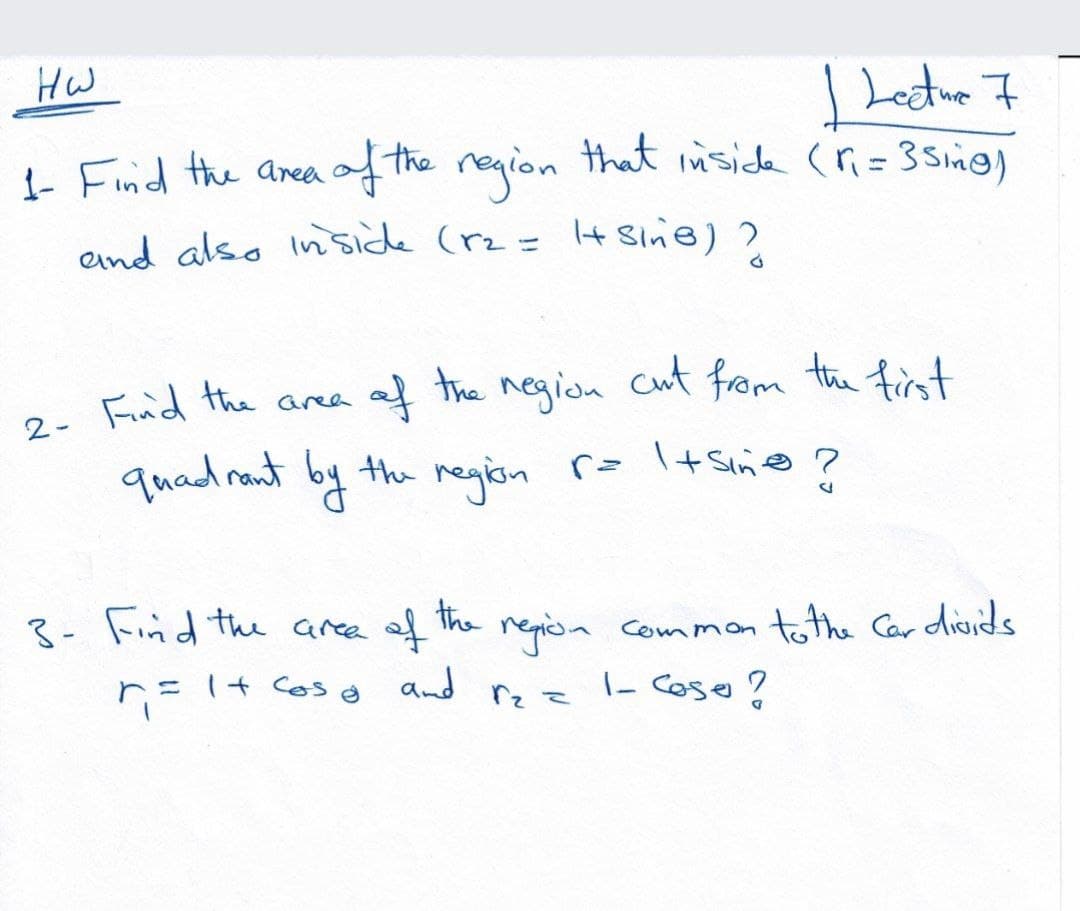 HW
Lecture 7
1- Find the area of the region that inside (r₁ = 3 sinθ)
and also inside (r₂ = 1+ sinθ) ?
2- Find the area of the region cut from the first
quadrant by the region r = 1+ sinθ ?
3- Find the area of the region common to the Cardioids
r₁ = 1+ cosθ and r₂ = 1- Cosθ ?